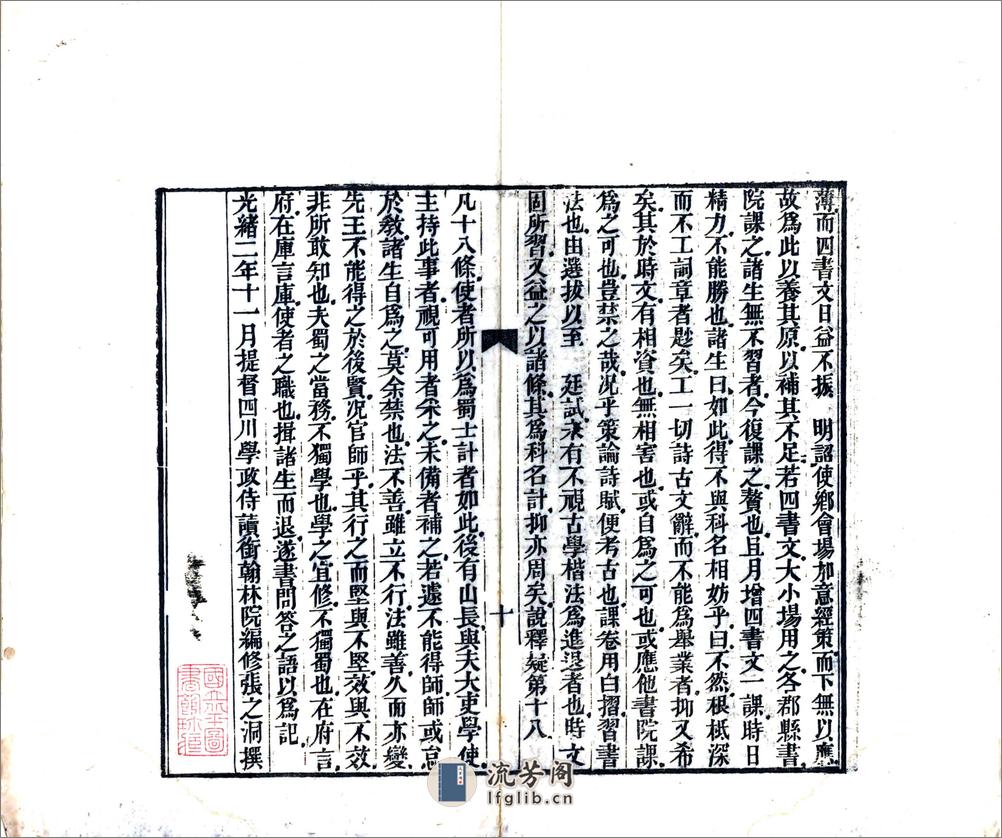 薄而四書文日益不振　明詔使鄉會場加意經策而下無以應
故爲此以養其原以補其不足若四書文大小場用之各郡縣書
院課之諸生無不習者今復課之贅也且月增四書文一課時日
精力不能勝也諸生曰如此得不與科名相妨乎曰不然根柢深
而不工詞章者尟矣工一切詩古文辭而不能爲舉業者抑又希
矣其於時文有相資也無相害也或自爲之可也或應他書院課
爲之可也豈禁之哉况乎策論詩賦便考古也課卷用白摺習書
法也由選拔以至　廷試未有不視古學楷法爲進退者也時文
固所習又益之以諸條其爲科名計抑亦周矣說釋疑第十八
十
凡十八條使者所以爲蜀士計者如此後有山長與夫大吏學使
主持此事者視可用者采之未備者補之若遽不能得師師或怠
於教諸生自爲之莫余禁也法不善雖立不行法雖善久而亦變
先王不能得之於後賢況官師乎其行之而堅與不堅效與不效
非所敢知也夫蜀之當務不獨學也學之宜修不獨蜀也在府言
府在庫言庫使者之職也揖諸生而退遂書問答之語以爲記
光緒二年十一月提督四川學政侍讀銜翰林院編修張之洞撰
國立北平圖
書館珍藏
流芳阁
lfglib.cn